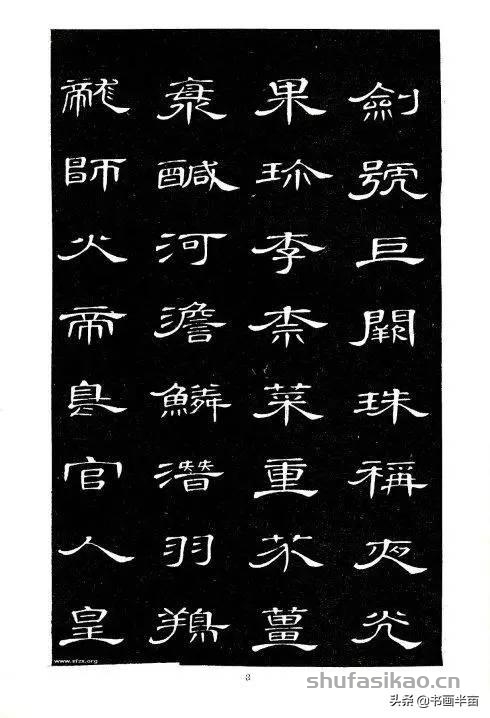 劍號巨闕珠稱夜光
果珎李柰菜重芥薑
海醎河澹鱗潛羽鴹
龍師火帝鳥官人皇
www.sfzx.org
3
shufasikao.cn
头条@书画半亩